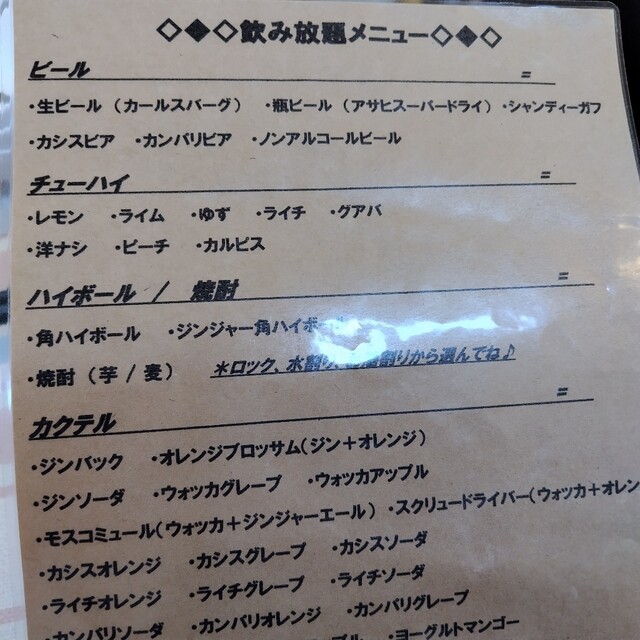 ◇◆◇飲み放題メニュー◇◆◇
ビール =
・生ビール(カールスバーグ) ・瓶ビール(アサヒスーパードライ) ・シャンディーガフ
・カシスビア ・カンパリビア ・ノンアルコールビール
チューハイ =
・レモン ・ライム ・ゆず ・ライチ ・グアバ
・洋ナシ ・ピーチ ・カルピス
ハイボール / 焼酎 =
・角ハイボール ・ジンジャー角ハイボール
・焼酎(芋/麦) *ロック、水割り、お湯割りから選んでね♪
カクテル =
・ジンバック ・オレンジブロッサム(ジン+オレンジ)
・ジンソーダ ・ウォッカグレープ ・ウォッカアップル
・モスコミュール(ウォッカ+ジンジャーエール) ・スクリュードライバー(ウォッカ+オレン
・カシスオレンジ ・カシスグレープ ・カシスソーダ
・ライチオレンジ ・ライチグレープ ・ライチソーダ
・カンパリソーダ ・カンパリオレンジ ・カンパリグレープ
・ヨーグルトマンゴー